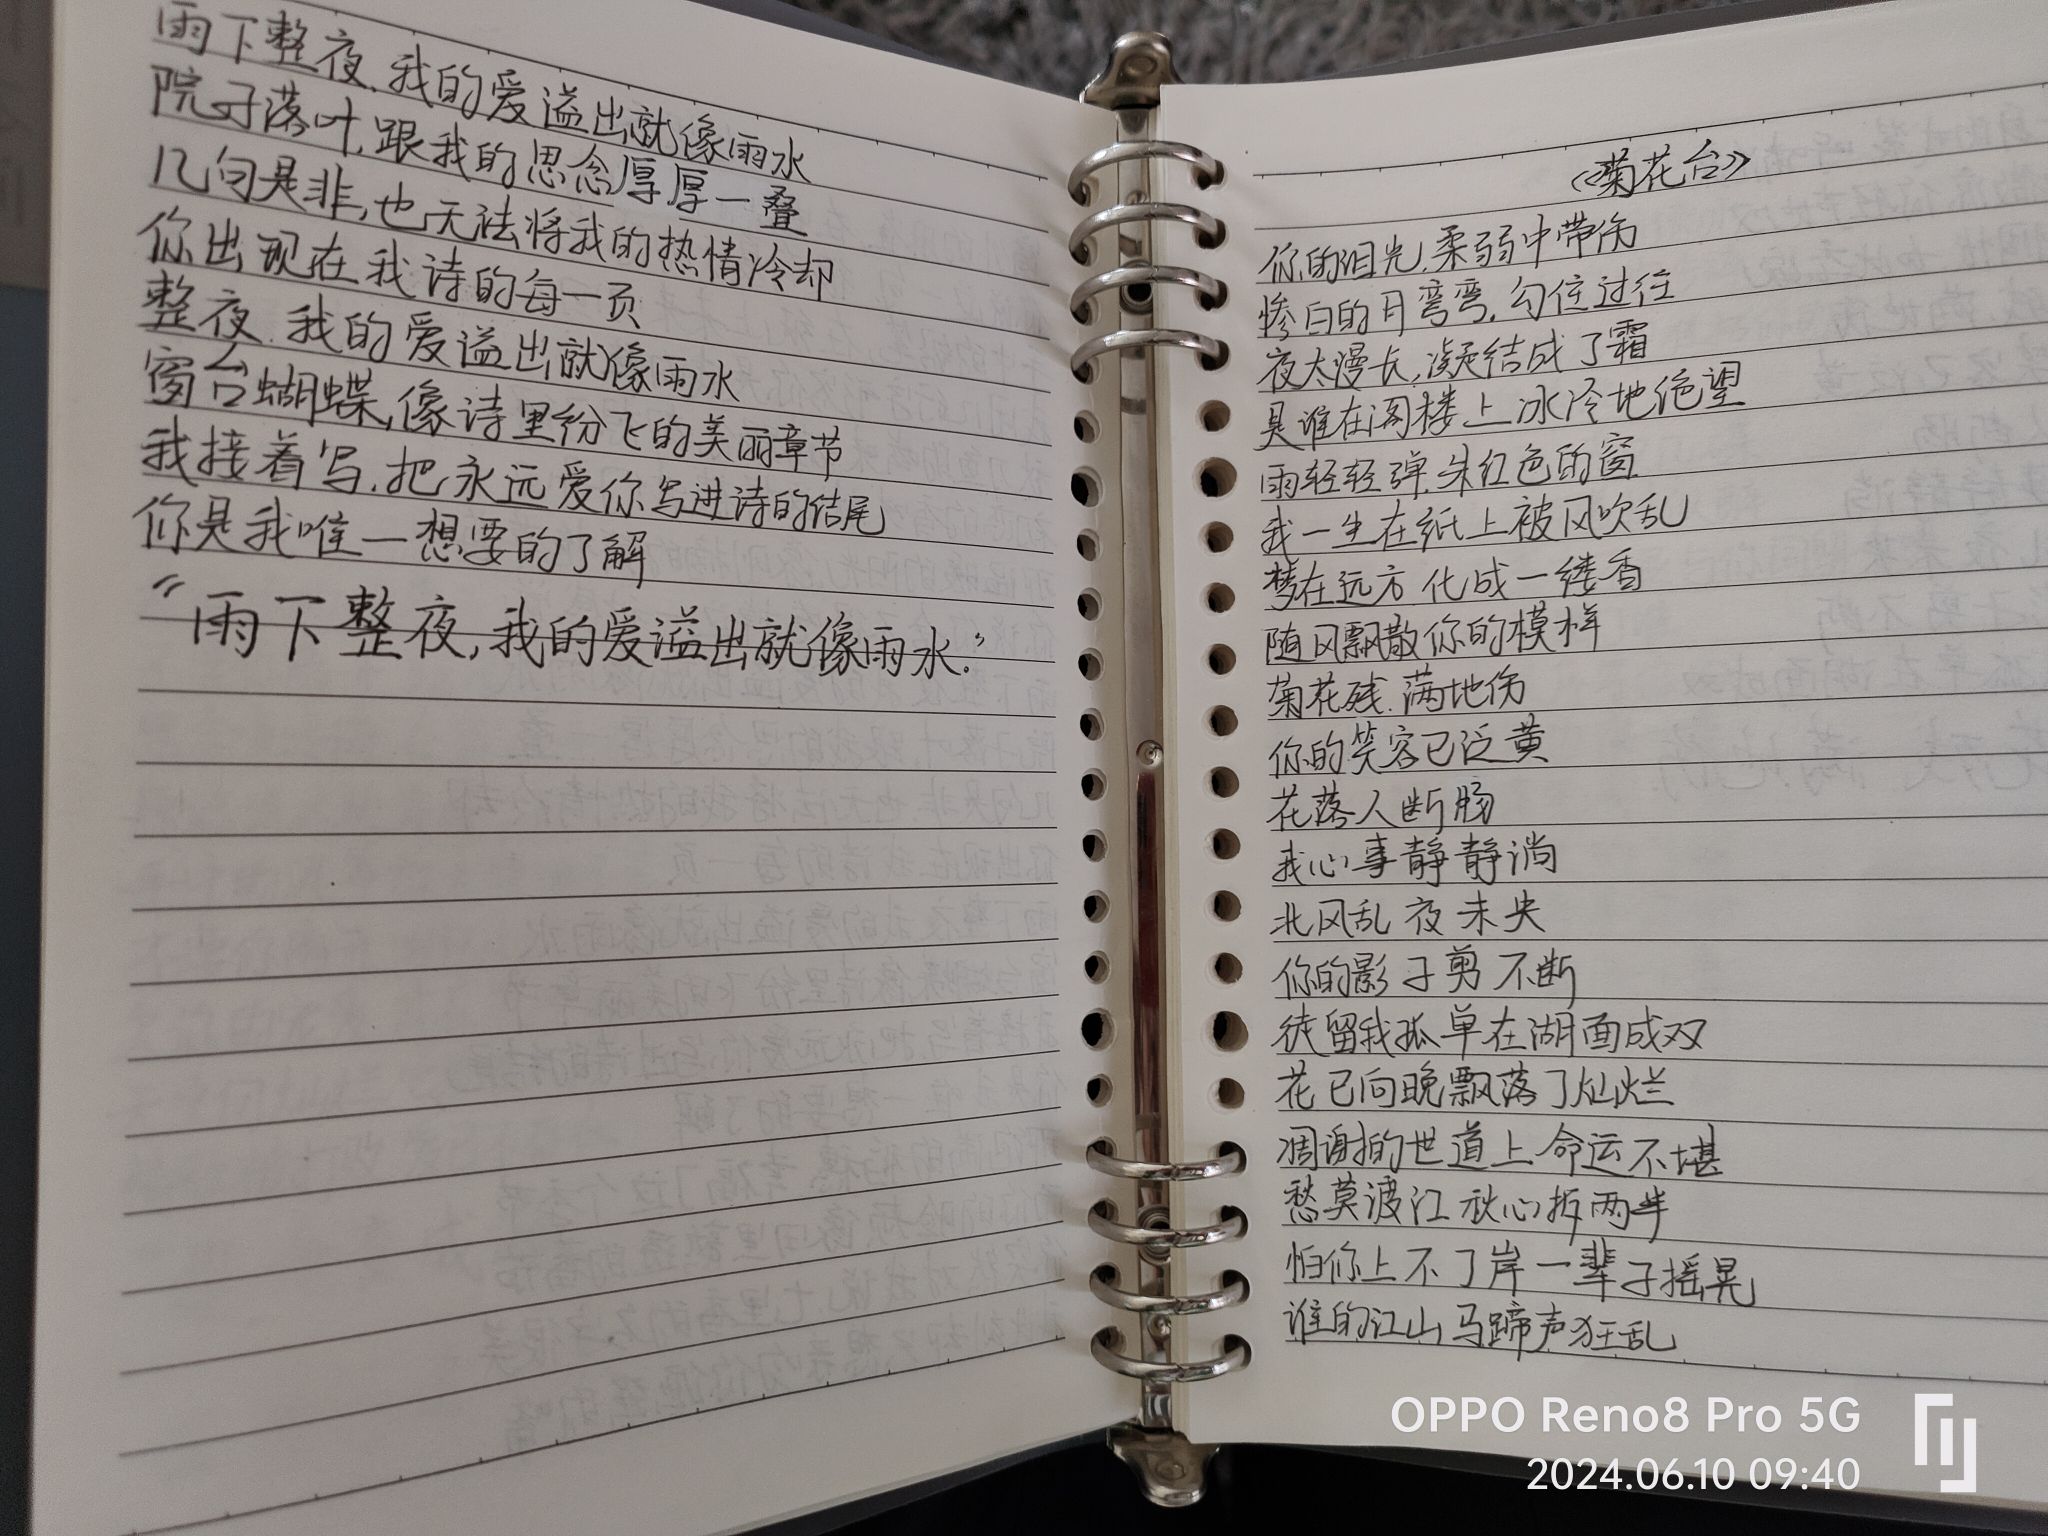 雨下整夜,我的爱溢出就像雨水
院子落叶,跟我的思念厚厚一叠
几句是非,也无法将我的热情冷却
你出现在我诗的每一页
整夜,我的爱溢出就像雨水
窗台蝴蝶,像诗里纷飞的美丽章节
我接着写,把永远爱你写进诗的结尾
你是我唯一想要的了解
“雨下整夜,我的爱溢出就像雨水.”
《菊花台》
你的泪光,柔弱中带伤
惨白的月弯弯,勾住过往
夜太漫长,凝结成了霜
是谁在阁楼上冰冷地绝望
雨轻轻弹,朱红色的窗
我一生在纸上被风吹乱
梦在远方 化成一缕香
随风飘散你的模样
菊花残,满地伤
你的笑容已泛黄
花落人断肠
我心事静静淌
北风乱 夜未央
你的影子剪不断
徒留我孤单在湖面成双
花已向晚飘落了灿烂
凋谢的世道上命运不堪
愁莫渡江 秋心拆两半
怕你上不了岸一辈子摇晃
谁的江山马蹄声狂乱
OPPO Reno8 Pro 5G
2024.06.10 09:40